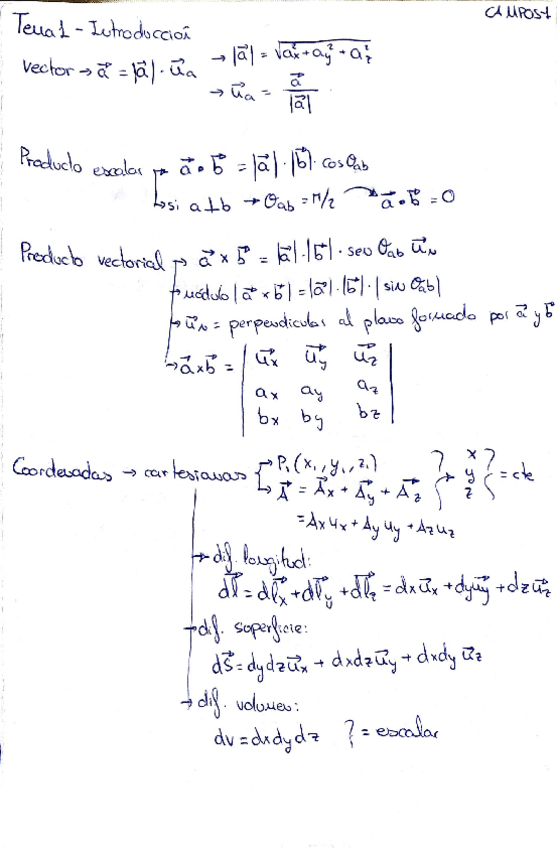 CAMPOS 1
Tema 1 - Introducción
vector → a⃗ = |a⃗| · u⃗a → |a⃗| = √(ax² + ay² + az²)
→ u⃗a = a⃗ / |a⃗|
Producto escalar → a⃗ • b⃗ = |a⃗| · |b⃗| · cos θab
→ si a ⊥ b → θab = π/2 → a⃗ • b⃗ = 0
Producto vectorial → a⃗ × b⃗ = |a⃗| · |b⃗| · sen θab u⃗N
→ módulo |a⃗ × b⃗| = |a⃗| · |b⃗| · |sin θab|
→ u⃗N = perpendicular al plano formado por a⃗ y b⃗
→ a⃗ × b⃗ = | u⃗x u⃗y u⃗z |
| ax ay az |
| bx by bz |
Coordenadas → cartesianas { → P1 (x1, y1, z1) } → x y z } = cte
→ A⃗ = A⃗x + A⃗y + A⃗z
= Ax ux + Ay uy + Az uz
→ dif. longitud:
dl⃗ = dl⃗x + dl⃗y + dl⃗z = dx u⃗x + dy u⃗y + dz u⃗z
→ dif. superficie:
dS⃗ = dydz u⃗x + dxdz u⃗y + dxdy u⃗z
→ dif. volumen:
dv = dxdydz } = escalar